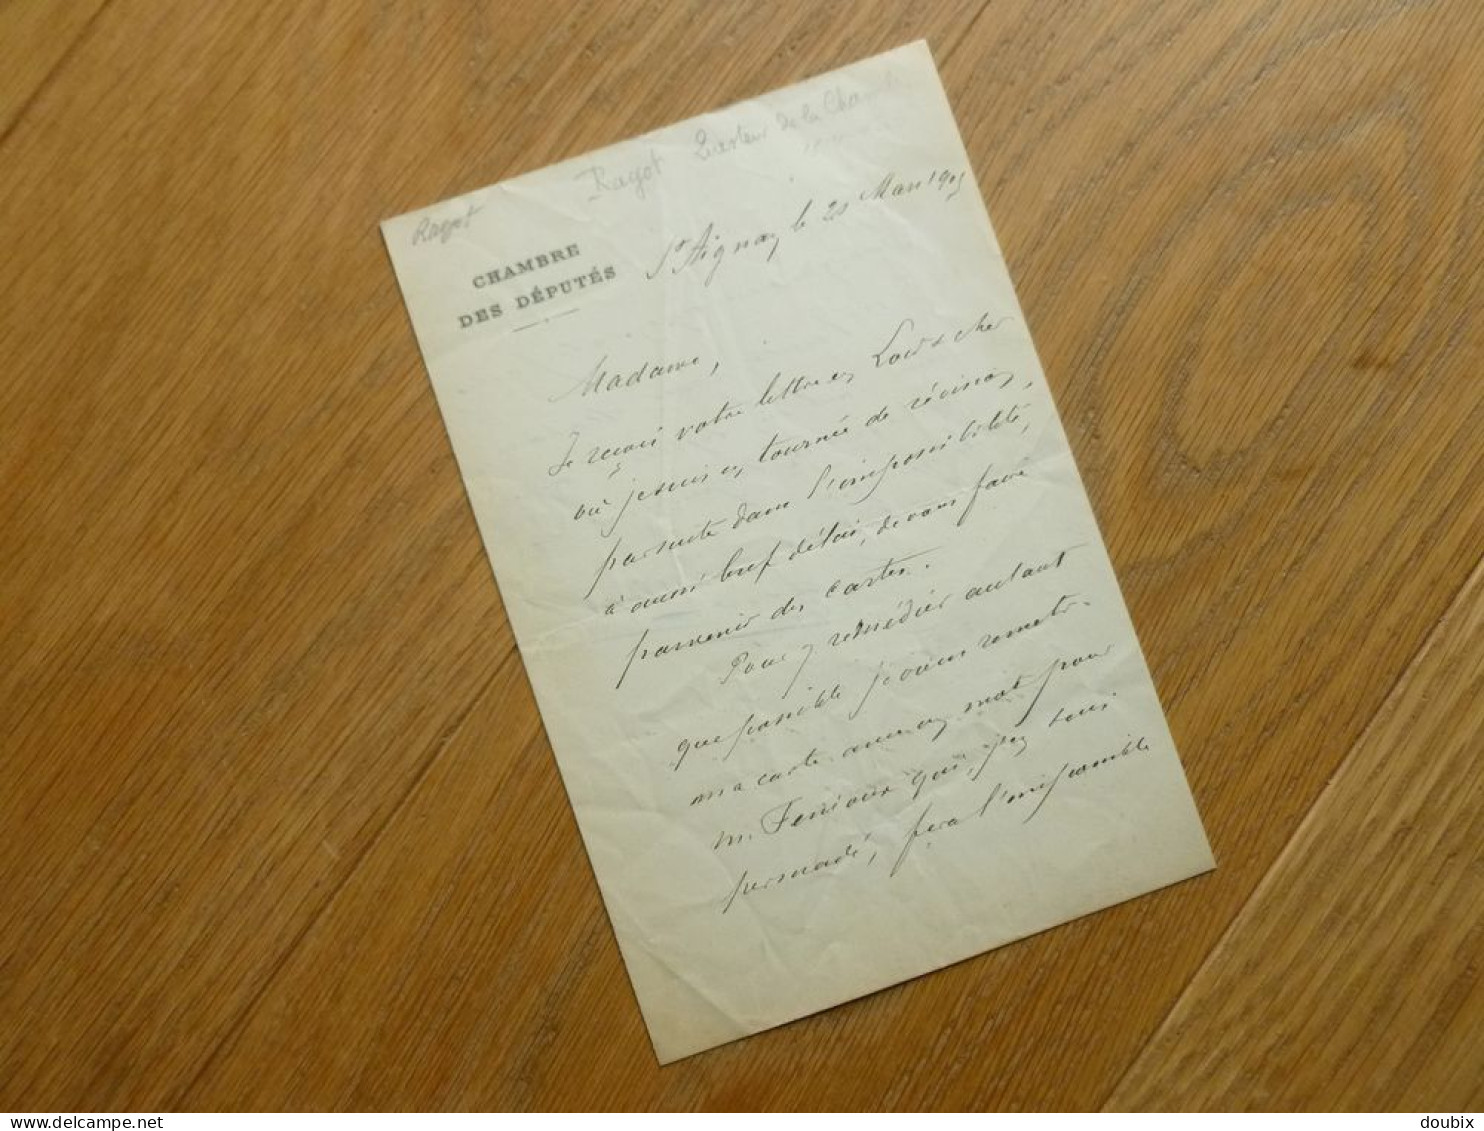 Ragot Questeur de la Chambre
Ragot
CHAMBRE
DES DÉPUTÉS
St Aignan le 20 Mars 1905
Madame,
Je reçois votre lettre en Loir & Cher
où je suis en tournée de révision,
par suite dans l'impossibilité,
à aussi bref délai, de vous faire
parvenir des cartes.
Pour y remédier autant
que possible je viens remettre
ma carte avec un mot pour
M. qui, j'en suis
persuadé, fera l'impossible
delcampe.net
doubix